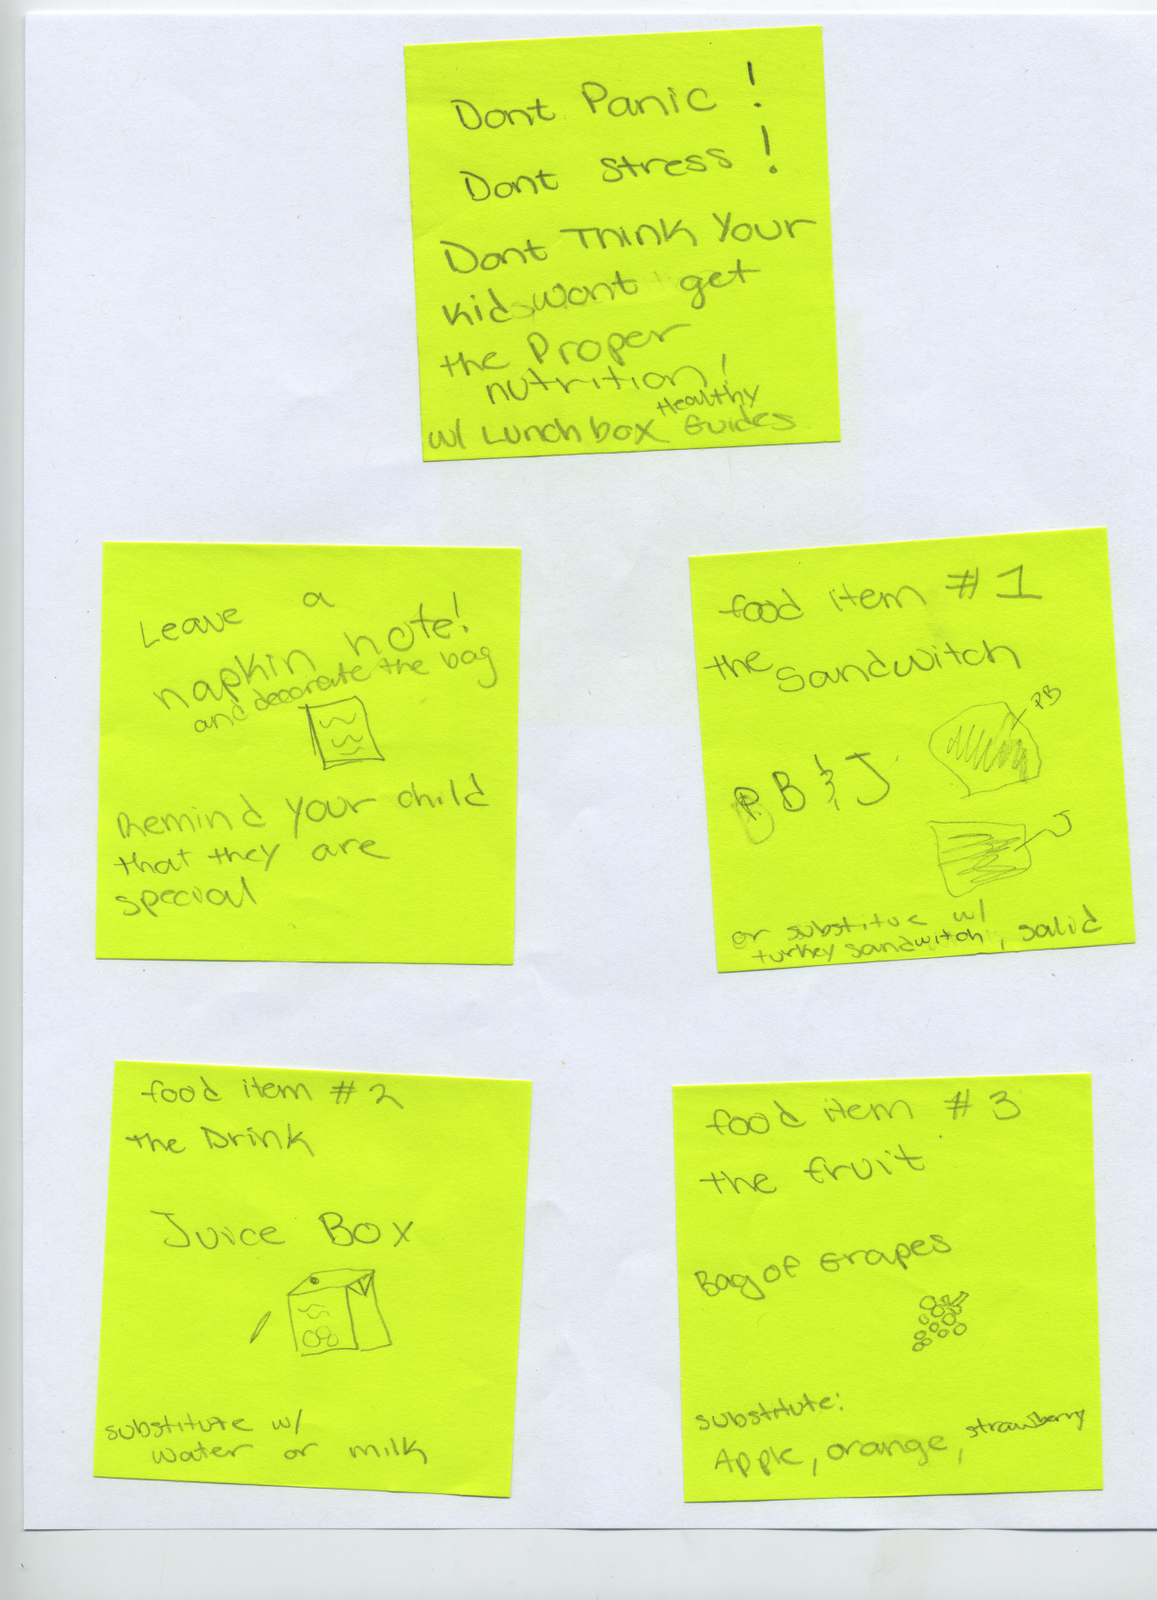 Dont Panic !
Dont stress !
Dont Think Your
kids wont get
the Proper
nutrition!
w/ Lunch box Healthy Guides
Leave a
napkin note!
and decorate the bag
Remind your child
that they are
special
food item #1
the Sandwitch
PB
PB & J
J
or substitue w/
turkey sandwitch, salid
food item #2
the Drink
Juice Box
substitute w/
water or milk
food item #3
the fruit
Bag of Grapes
substitute:
Apple, orange, strawberry